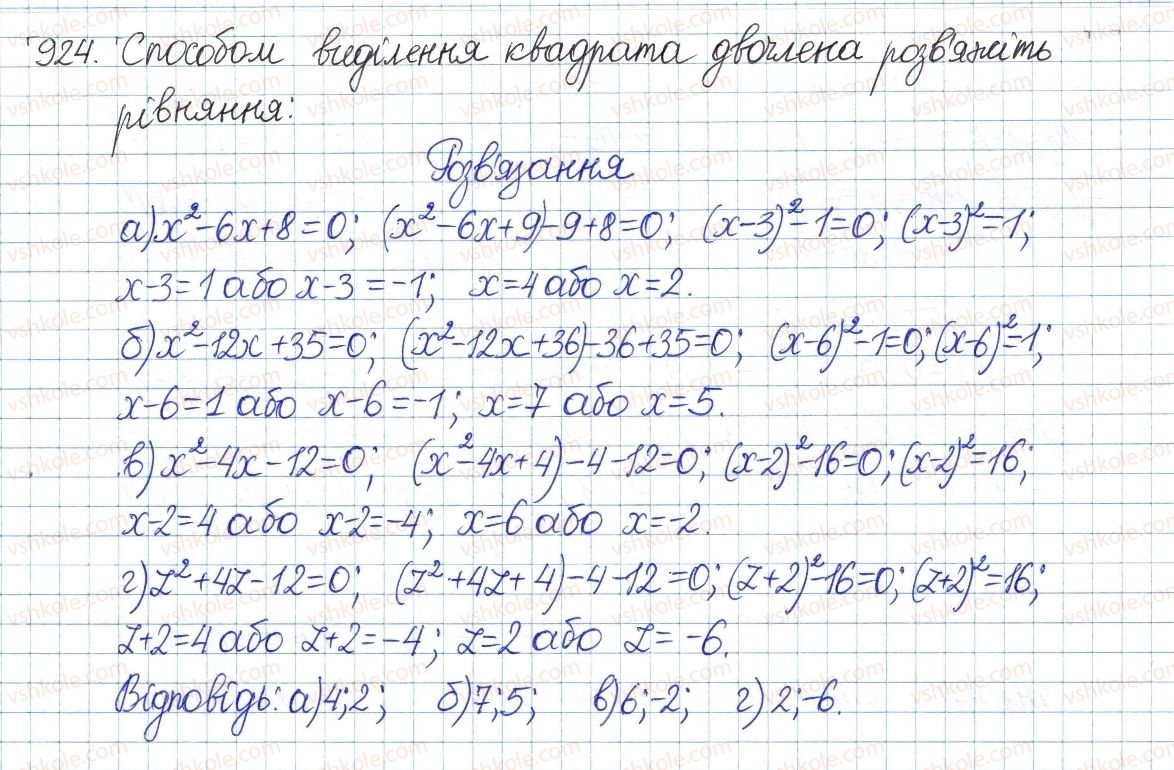 924. Способом виділення квадрата двочлена розв'яжіть
рівняння:
Розв'язання
а) x²-6x+8=0; (x²-6x+9)-9+8=0; (x-3)²-1=0; (x-3)²=1;
x-3=1 або x-3=-1; x=4 або x=2.
б) x²-12x+35=0; (x²-12x+36)-36+35=0; (x-6)²-1=0; (x-6)²=1;
x-6=1 або x-6=-1; x=7 або x=5.
в) x²-4x-12=0; (x²-4x+4)-4-12=0; (x-2)²-16=0; (x-2)²=16;
x-2=4 або x-2=-4; x=6 або x=-2.
г) z²+4z-12=0; (z²+4z+4)-4-12=0; (z+2)²-16=0; (z+2)²=16;
z+2=4 або z+2=-4; z=2 або z=-6.
Відповідь: а) 4; 2; б) 7; 5; в) 6; -2; г) 2; -6.